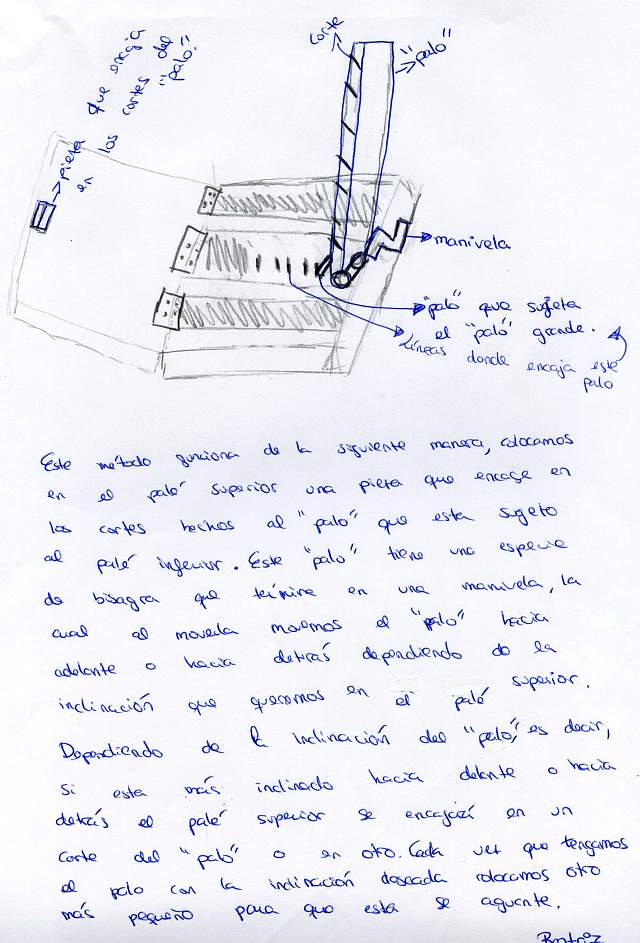 corte
"palo"
pieza que encaja
en los cortes del
"palo".
manivela
"palo" que sujeta
el "palo" grande.
líneas donde encaja este
palo
Este método funciona de la siguiente manera, colocamos
en el palé superior una pieza que encage en
los cortes hechos al "palo" que esta sugeto
al palé inferior. Este "palo" tiene una especie
de bisagra que termine en una manivela, la
cual al moverla movemos el "palo" hacia
adelante o hacia detrás dependiendo de la
inclinación que queremos en el palé superior.
Dependiendo de la inclinación del "palo", es decir,
si esta más inclinado hacia delante o hacia
detrás el palé superior se encajará en un
corte del "palo" o en otro. Cada vez que tengamos
el palo con la inclinación deseada colocamos otro
más pequeño para que esta se aguante.